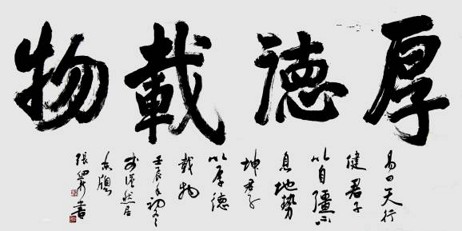 厚德載物
易曰天行
健君子
以自彊不
息地勢
坤君子
以厚德
載物
壬辰年
張 書